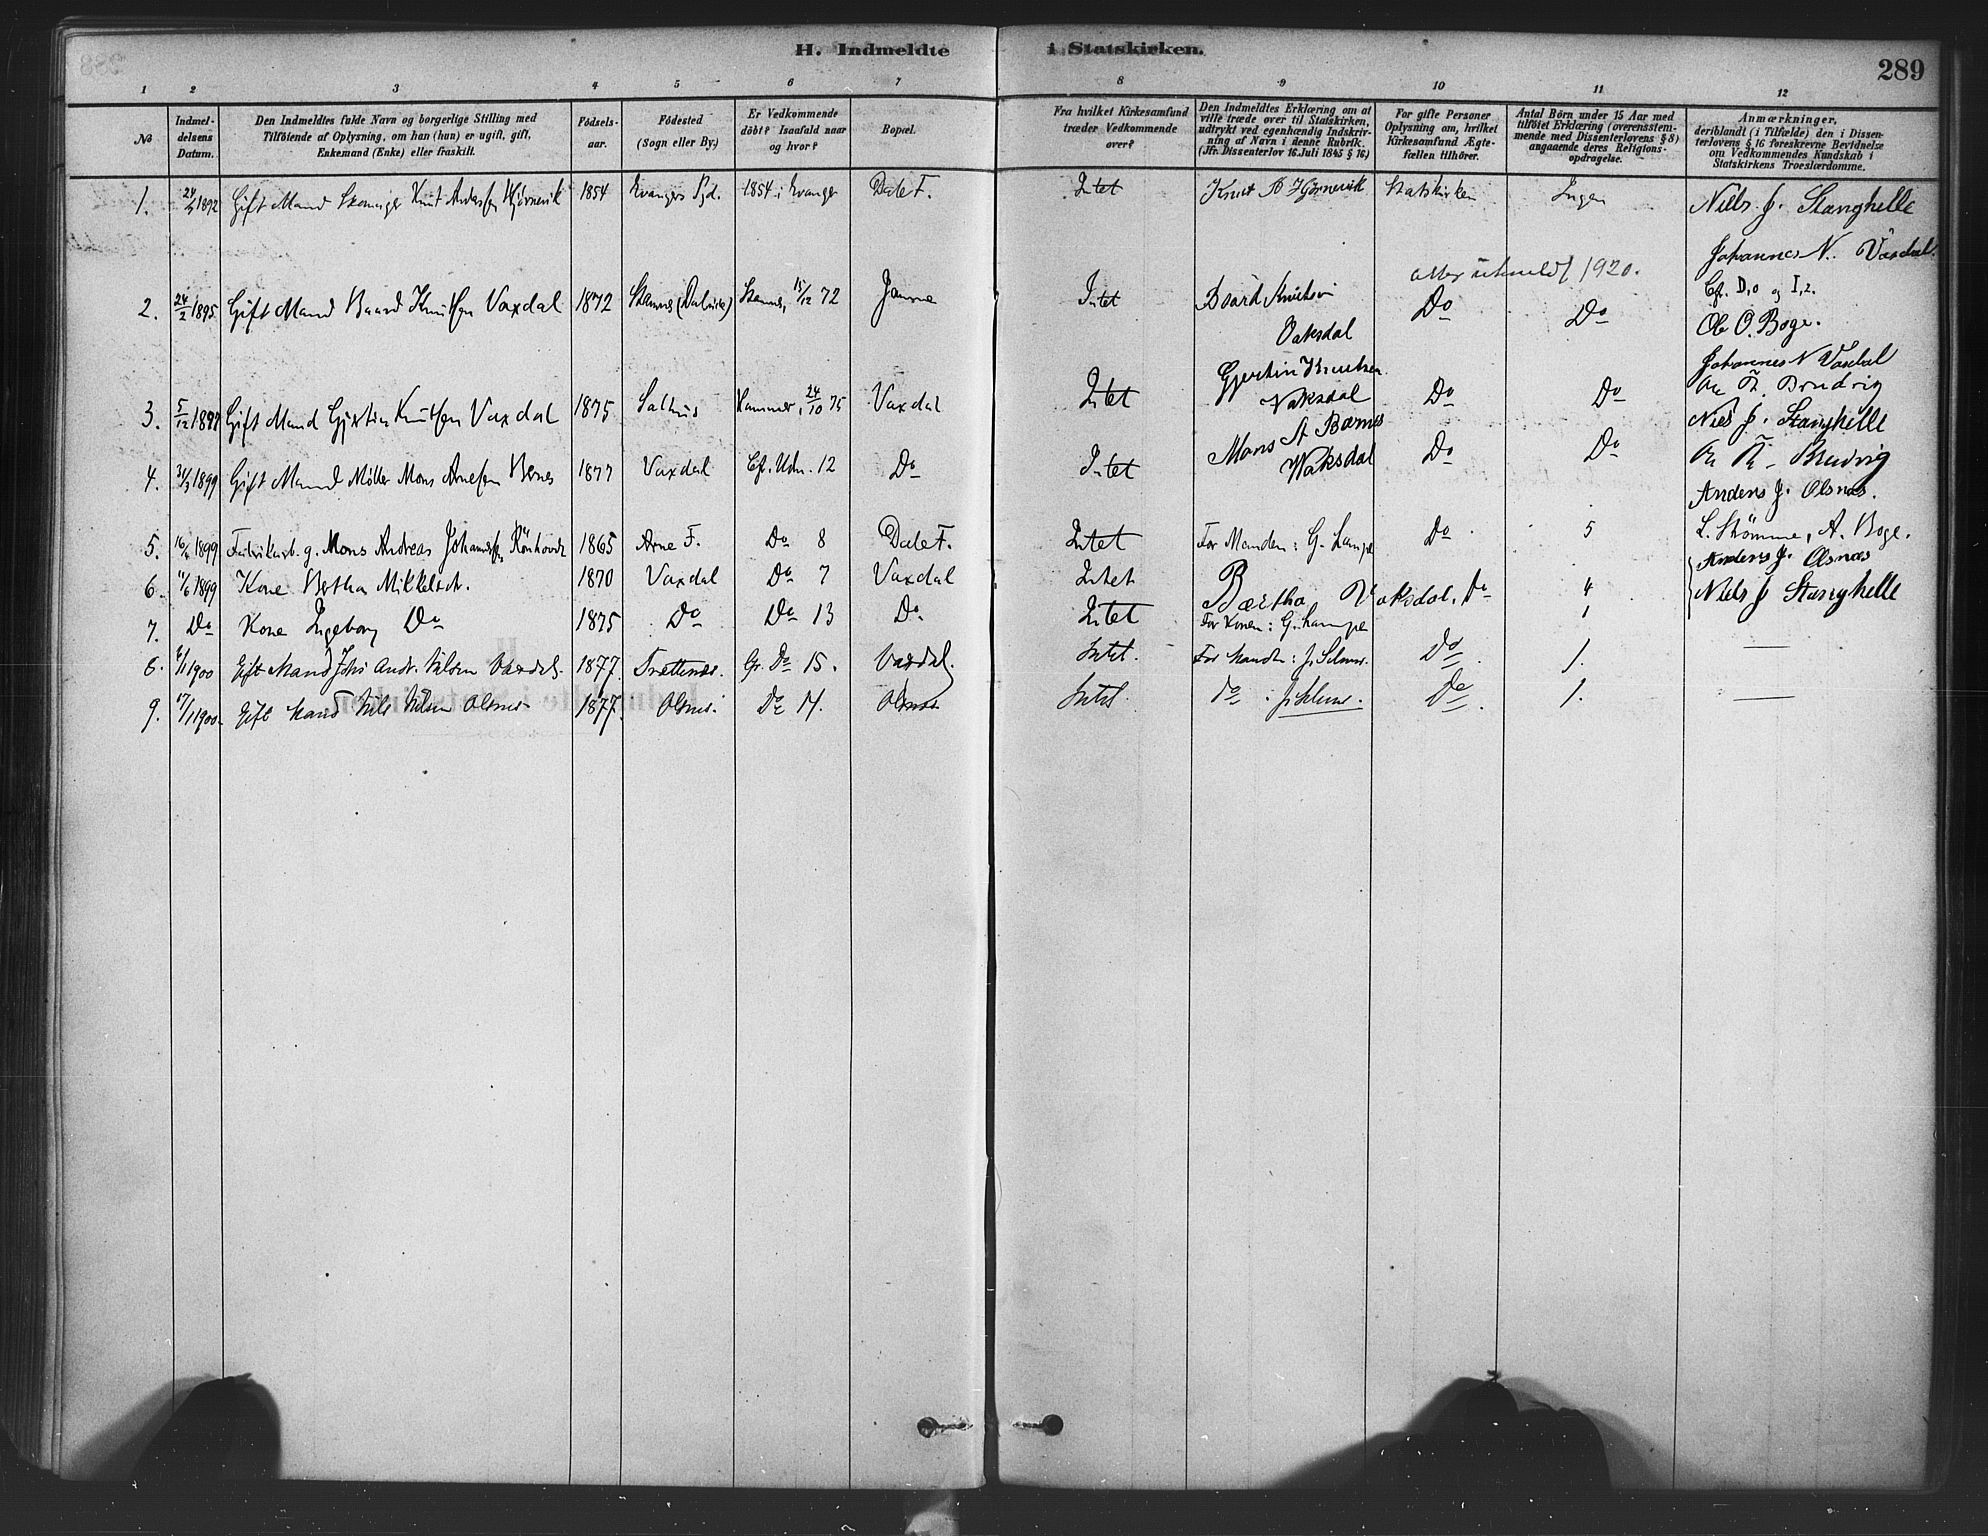 H. Indmeldte i Statskirken.
289
1 2 3 4 5 6 7 8 9 10 11 12
No
Indmel-
delsens
Datum.
Den Indmeldtes fulde Navn og borgerlige Stilling med
Tilföiende af Oplysning, om han (hun) er ugift, gift,
Enkemand (Enke) eller fraskilt.
Födsels-
aar.
Födested
(Sogn eller By.)
Er Vedkommende
döbt? Isaafald naar
og hvor?
Bopæl.
Fra hvilket Kirkesamfund
træder Vedkommende
over?
Den Indmeldtes Erklæring om at
ville træde over til Statskirken,
udtrykt ved egenhændig Indskriv-
ning af Navn i denne Rubrik.
(Jfr. Dissenterlov 16. Juli 1845 § 16)
For gifte Personer
Oplysning om, hvilket
Kirkesamfund Ægte-
fællen tilhörer.
Antal Börn under 15 Aar med
tilföiet Erklæring (overensstem-
mende med Dissenterlovens § 8)
angaaende deres Religions-
opdragelse.
Anmærkninger,
deriblandt (i Tilfælde) den i Dissen-
terlovens § 16 foreskrevne Bevidnelse
om Vedkommendes Kundskab i
Statskirkens Troeslærdomme.
1. 1892 Gift Mand Knut Andersen Hjörnevik 1854 Evangers Pgd. 1854 i Evanger Dale F. Intet Knut A Hjörnevik Statskirken Ingen Niels J. Stanghelle
Johannes N. Vaxdal.
1920.
2. 24/2 1895 Gift Mand Baard Knutsen Vaxdal 1872 Stamnes 15/12 72 Intet Baard Knutsen Do Do Cfr. D,0 og I,2.
Vaksdal Ole O. Boge.
Johannes N Vaxdal
3. 5/12 1897 Gift Mand Gjertin Knutsen Vaxdal 1875 Salhus Hammer, 24/10 75 Vaxdal Intet Gjertin Knutsen Do Do
Vaksdal Niels J. Stanghelle
4. 1899 Gift Mand Möller Mons Arnesen Bernes 1877 Vaxdal Cf. Udm. 12 Do Intet Mons A Bærnes Do Do
Waksdal Anders J. Olsnæs.
5. 1899 Fabrikarb. g. Mons Andreas 1865 Arne F. Do 8 Dale F. Intet For Manden: G. Lampe Do 5 L. Strömme, A. Boge.
Anders J. Olsnæs
6. 1899 Kone Bertha Mikkelsdt. 1870 Vaxdal Do 7 Vaxdal Intet Bærtha Vaksdal. Do 4 Niels J Stanghelle
7. Do Kone Ingeborg Do 1875 Do Do 13 Do Intet For Konen: G. Lampe 1
8. 1900 Gift Mand Johs Andr. Nilsen Vaxdal. 1877. Do 15. Vaxdal. Intet. For Manden: Do 1.
9. 17/11 1900 Gift Mand Nils Nilsen Olsnes 1877. Olsnes. Do 14. Olsnes Intet. do Do 1.